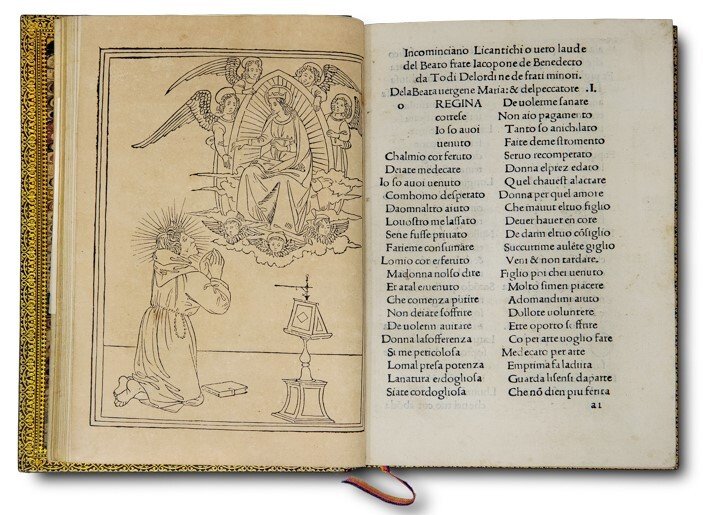 Incominciano Licantichi o uero laude
del Beato frate Iacopone de Benedecto
da Todi Delordine de frati minori.
Dela Beata uergene Maria: & del peccatore .I.
o REGINA
cortese
Io so auoi
uenuto
Chalmio cor feruto
Deiate medecare
Io so auoi uenuto
Comhomo desperato
Daomnaltro aiuto
Louostro me lassato
Sene fusse priuato
Farieme consumare
Lo mio cor e feruto
Madonna nolso dire
Et atal e uenuto
Che comenza putire
Non deiate soffrire
De uolerm aiutare
Donna lasofferenza
Si me pericolosa
Lomal presa potenza
Lanatura e dogliosa
Siate cordogliosa
De uolerme sanare
Non aio pagamento
Tanto so anichilato
Faite de me stromento
Seruo recomperato
Donna elprez edato
Quel chauest alactare
Donna per quel amore
Che mauut eltuo figlio
Deuer hauer en core
De darm eltuo cōsiglio
Succurrime aulēte giglio
Veni & non tardare.
Figlio poi che uenuto
Molto simen piacere
Adomandimi aiuto
Dollote uoluntere
Ette oporto soffrire
Co per arte uoglio fare
Medecaro per arte
Emprima fa ladiita
Guarda lisensi daparte
Che nō dien piu ferita
a1